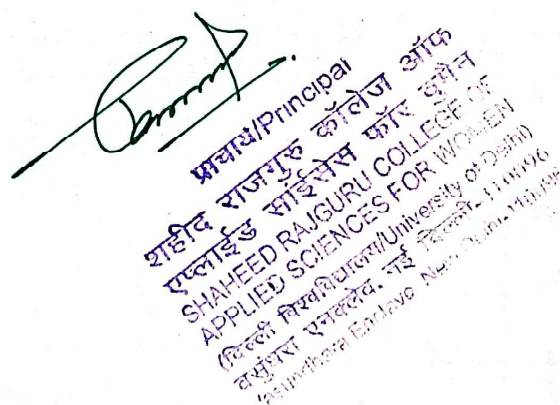 प्राचार्य/Principal
शहीद राजगुरु कॉलेज ऑफ
एप्लाईड साईंसेस फॉर वुमैन
SHAHEED RAJGURU COLLEGE OF
APPLIED SCIENCES FOR WOMEN
(दिल्ली विश्वविद्यालय/University of Delhi)
वसुंधरा एनक्लेव, नई दिल्ली-110096
Vasundhara Enclave New Delhi-110096